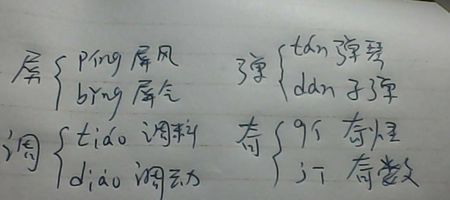 屏 { píng 屏风 弹 { tán 弹琴
bǐng 屏气 dàn 子弹
调 { tiáo 调料 奇 { qí 奇怪
diào 调动 jī 奇数